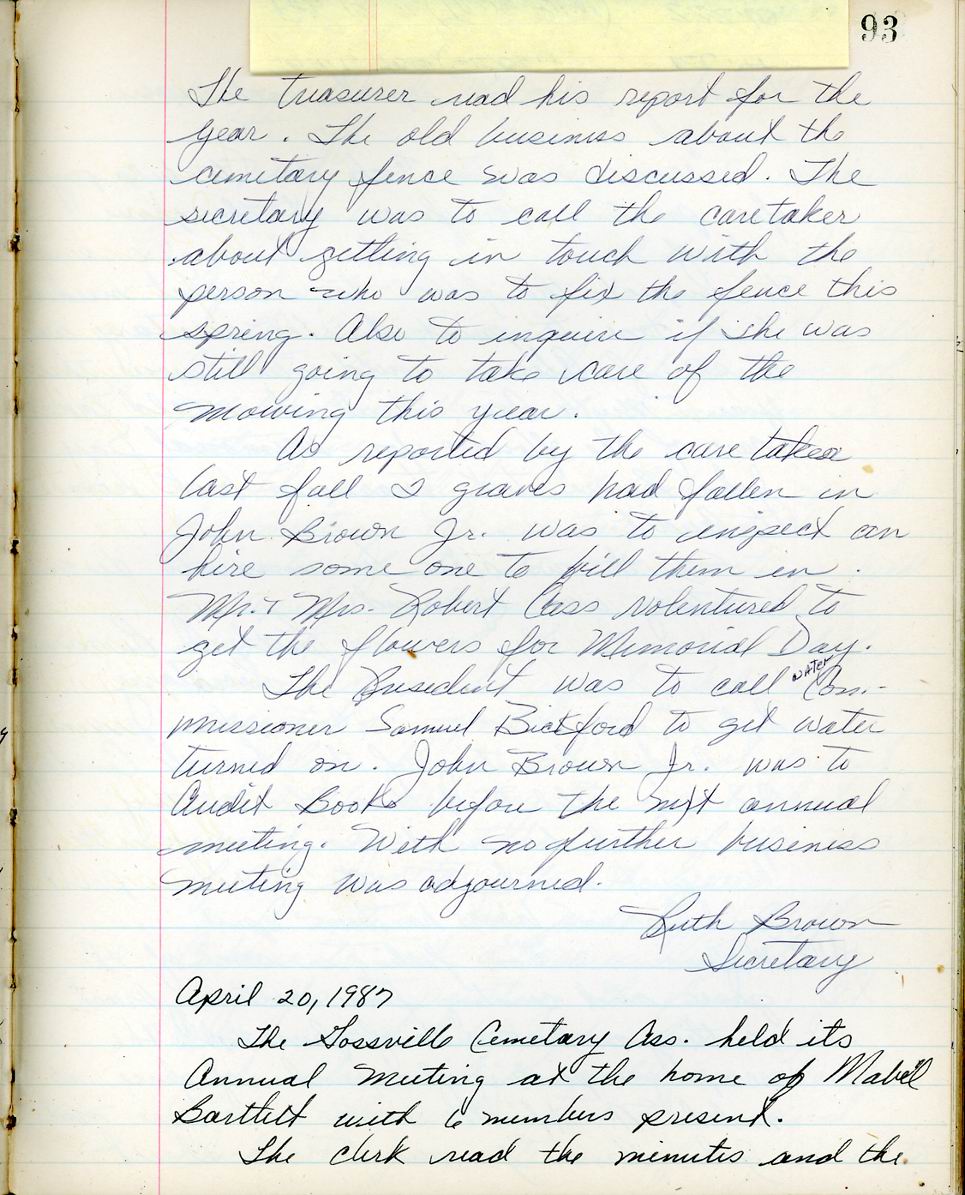 93
The treasurer read his report for the
year. The old business about the
cemetary fence was discussed. The
secretary was to call the caretaker
about getting in touch with the
person who was to fix the fence this
spring. Also to inquire if she was
still going to take care of the
mowing this year.
As reported by the care taker
last fall 2 graves had fallen in
John Brown Jr. was to inspect an
hire some one to fill them in.
Mr. & Mrs. Robert Cass volentured to
get the flowers for Memorial Day.
The President was to call water Com-
missioner Samuel Bickford to get water
turned on. John Brown Jr. was to
Audit Books before the next annual
meeting. With no further business
meeting was adjourned.
Ruth Brown
Secretary
April 20, 1987
The Gossville Cemetary Ass. held its
Annual Meeting at the home of Mabel
Bartlett with 6 members present.
The clerk read the minutes and the